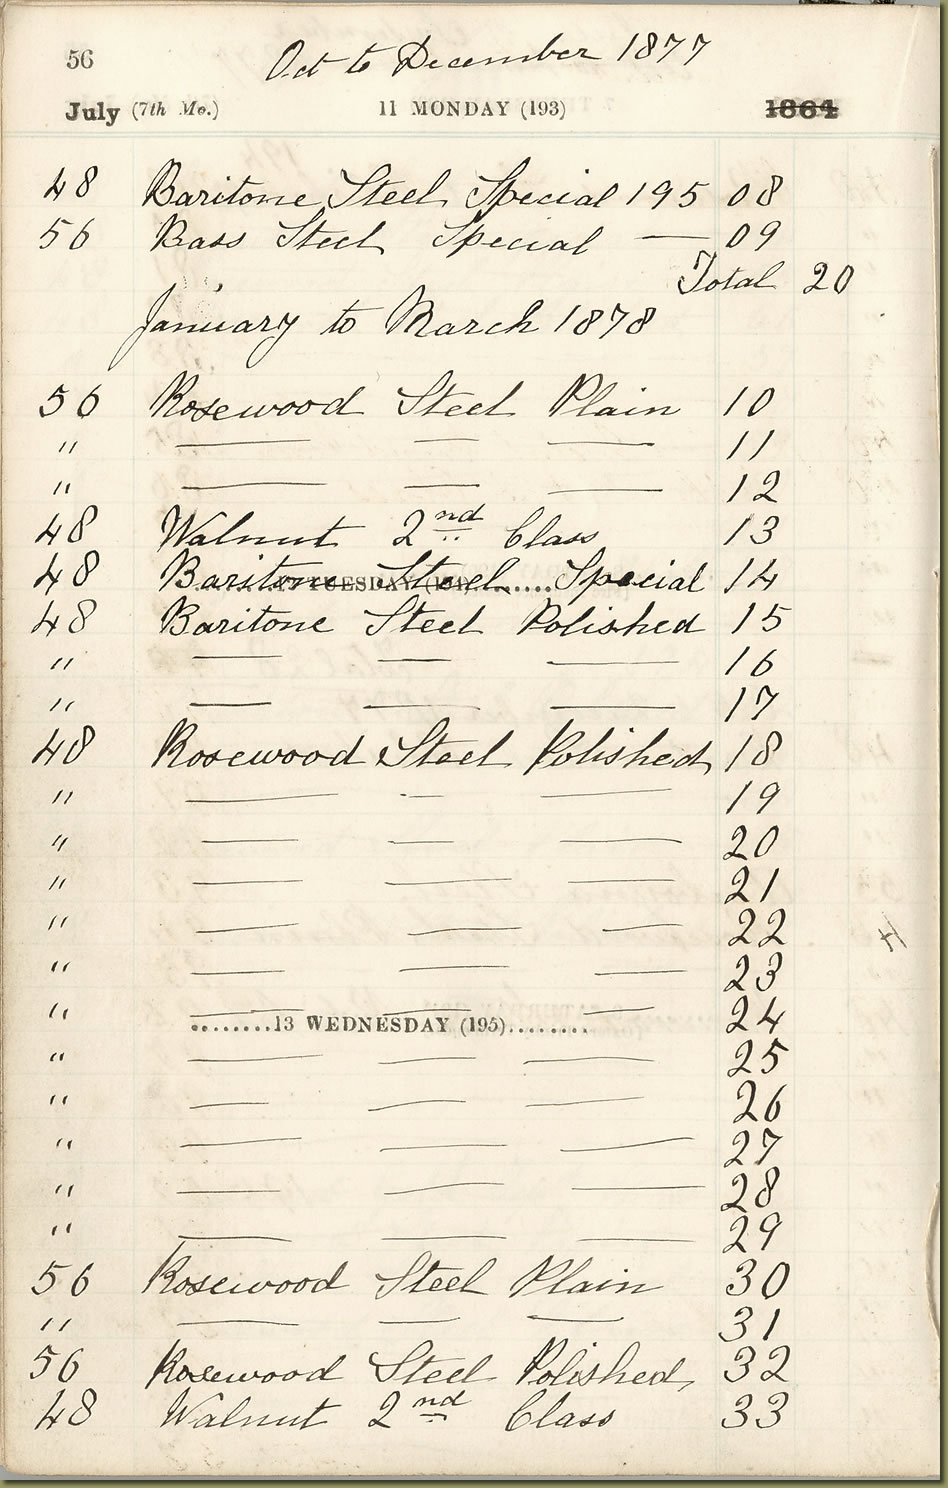 56 Oct to December 1877
July (7th Mo.) 11 MONDAY (193) 1864
48 Baritone Steel Special 195 08
56 Bass Steel Special — 09
Total 20
January to March 1878
56 Rosewood Steel Plain 10
" — — — 11
" — — — 12
48 Walnut 2nd Class 13
48 Baritone Steel Special 14
12 TUESDAY (194)
48 Baritone Steel Polished 15
" — — — 16
" — — — 17
48 Rosewood Steel Polished 18
" — — — 19
" — — — 20
" — — — 21
" — — — 22
" — — — 23
" — — — 24
........13 WEDNESDAY (195)........
" — — — 25
" — — — 26
" — — — 27
" — — — 28
" — — — 29
56 Rosewood Steel Plain 30
" — — — 31
56 Rosewood Steel Polished 32
48 Walnut 2nd Class 33